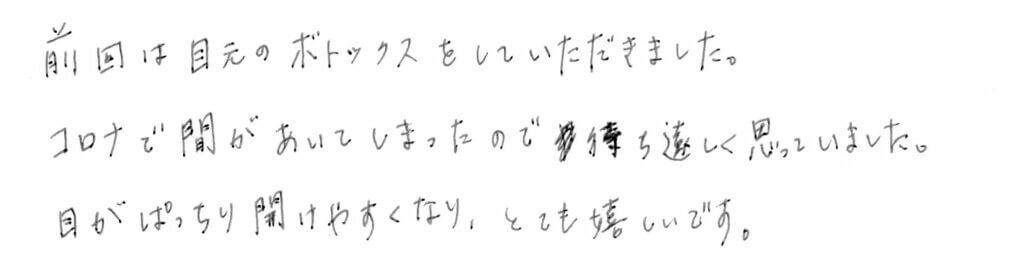 前回は目元のボトックスをしていただきました。
コロナで間があいてしまったので待ち遠しく思っていました。
目がぱっちり開けやすくなり、とても嬉しいです。